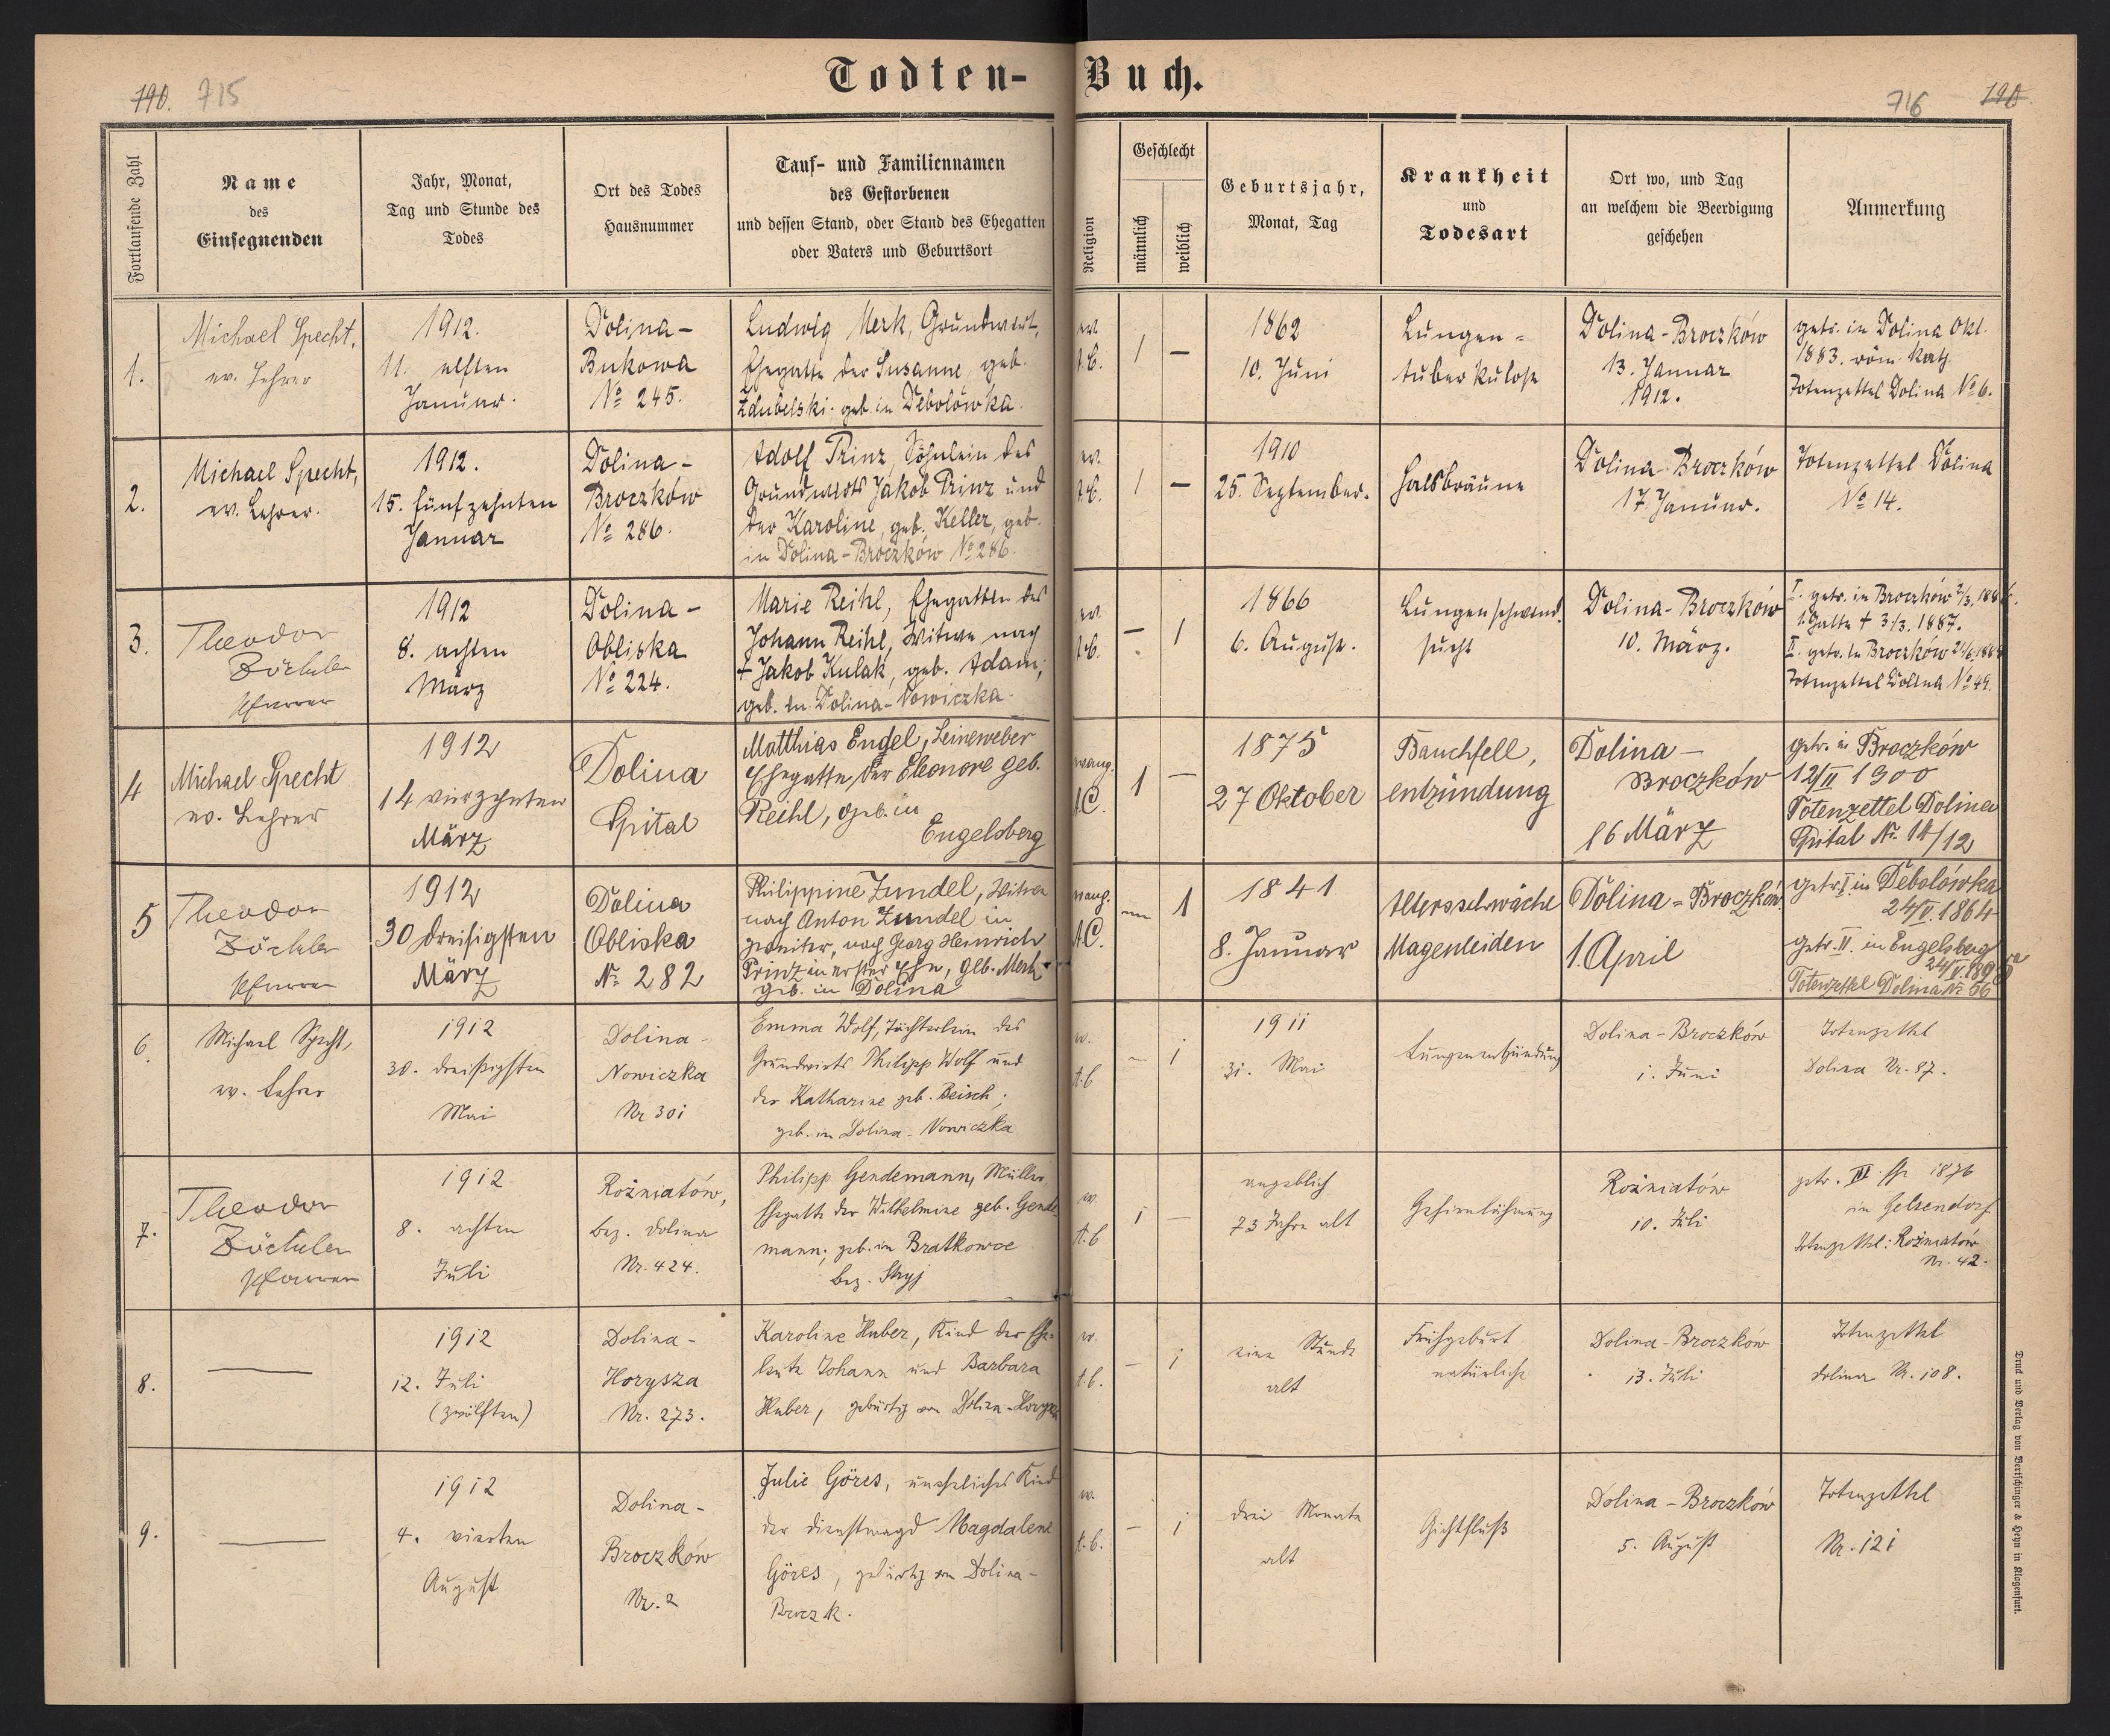 Todten-Buch.
190. 715
716 191.
Fortlaufende Zahl
Name
des
Einsegnenden
Jahr, Monat,
Tag und Stunde des
Todes
Ort des Todes
Hausnummer
Tauf- und Familiennamen
des Gestorbenen
und dessen Stand, oder Stand des Ehegatten
oder Vaters und Geburtsort
Religion
Geschlecht
männlich
weiblich
Geburtsjahr,
Monat, Tag
Krankheit
und
Todesart
Ort wo, und Tag
an welchem die Beerdigung
geschehen
Anmerkung
1.
Michael Specht,
ev. Lehrer
1912.
11. elften
Januar.
Dolina-
Bukowa
№ 245.
Ludwig Merk, Grundwirt,
Ehegatte der Susanne, geb.
Zdubelski. geb. in Debolówka.
ev.
A.C.
1
—
1862
10. Juni
Lungen=
tuberkulose
Dolina-Broczków
13. Januar
1912.
getr. in Dolina Okt.
1883. röm. Kath.
Totenzettel Dolina № 6.
2.
Michael Specht,
ev. Lehrer.
1912.
15. fünfzehnten
Januar
Dolina-
Broczków
№ 286.
Adolf Prinz, Söhnlein des
Grundwirts Jakob Prinz und
der Karoline, geb. Keller, geb.
in Dolina-Broczków № 286.
ev.
A.C.
1
—
1910
25. September.
Halsbräune
Dolina-Broczków
17. Januar.
Totenzettel Dolina
№ 14.
3.
Theodor
Zöckler
Pfarrer
1912
8. achten
März
Dolina-
Obliska
№ 224.
Marie Reihl, Ehegattin des
Johann Reihl, Witwe nach
+ Jakob Kulak, geb. Adam,
geb. in Dolina-Nowiczka.
ev.
A.C.
—
1
1866
6. August.
Lungenschwind
sucht
Dolina-Broczków
10. März.
I. getr. in Broczków
1. Gatte + 3/3. 1887.
II. getr. in Broczków
Totenzettel Dolina № 49.
4
Michael Specht
ev. Lehrer
1912
14 vierzehnten
März
Dolina
Spital
Matthias Engel, Leineweber
Ehegatte der Eleonore geb.
Reihl, geb. in
Engelsberg
evang.
A.C.
1
—
1875
27 Oktober
Bauchfell,
entzündung
Dolina-
Broczków
16 März
getr. in Broczków
12/II 1900
Totenzettel Dolina
Spital № 14/12
5
Theodor
Zöckler
Pfarrer
1912
30 dreisigsten
März
Dolina
Obliska
№ 282
Philippine Zundel, Witwe
nach Anton Zundel in
zweiter, nach Georg Heinrich
Prinz in erster Ehe, geb. Merk
geb. in Dolina
evang.
A.C.
—
1
1841
8. Januar
Altersschwäche
Magenleiden
Dolina=Broczków
1. April
getr. I in Debolówka
24/V. 1864
getr. II. in Engelsberg
Totenzettel Dolina № 56
6.
Michael Specht,
ev. Lehrer
1912
30. dreißigsten
Mai
Dolina-
Nowiczka
Nr 301
Emma Wolf, Töchterlein des
Grundwirts Philipp Wolf und
der Katharine geb. Beisch;
geb. in Dolina-Nowiczka
ev.
A.C
—
1
1911
31. Mai
Lungenentzündung
Dolina-Broczków
1. Juni
Totenzettel
Dolina Nr. 87.
7.
Theodor
Zöckler
Pfarrer
1912
8. achten
Juli
Rożniatów,
bez. Dolina
Nr. 424.
Philipp Gendemann, Müller,
Ehegatte der Wilhelmine geb. Gende-
mann; geb. in Bratkowce
bez. Stryj
ev.
A.C
1
—
angeblich
73 Jahre alt
Gehirnlähmung
Rożniatów
10. Juli
getr. III. Ehe 1876
in Gelsendorf
Totenzettel: Rożniatów
Nr. 42.
8.
—
1912
12. Juli
(zwölften)
Dolina-
Horysza
Nr. 273.
Karoline Huber, Kind der Ehe-
leute Johann und Barbara
Huber, gebürtig von Dolina-Horysza
ev.
A.C.
—
1
eine Stunde
alt
Frühgeburt
natürliche
Dolina-Broczków
13. Juli
Totenzettel
Dolina Nr. 108.
9.
—
1912
4. vierten
August
Dolina-
Broczków
Nr. 2
Julie Göres, uneheliches Kind
der Dienstmagd Magdalene
Göres, gebürtig von Dolina-
Broczk.
ev.
A.C.
—
1
drei Monate
alt
Gichtfluß
Dolina-Broczków
5. August
Totenzettel
Nr. 121
Druck und Verlag von Bertschinger & Heyn in Klagenfurt.